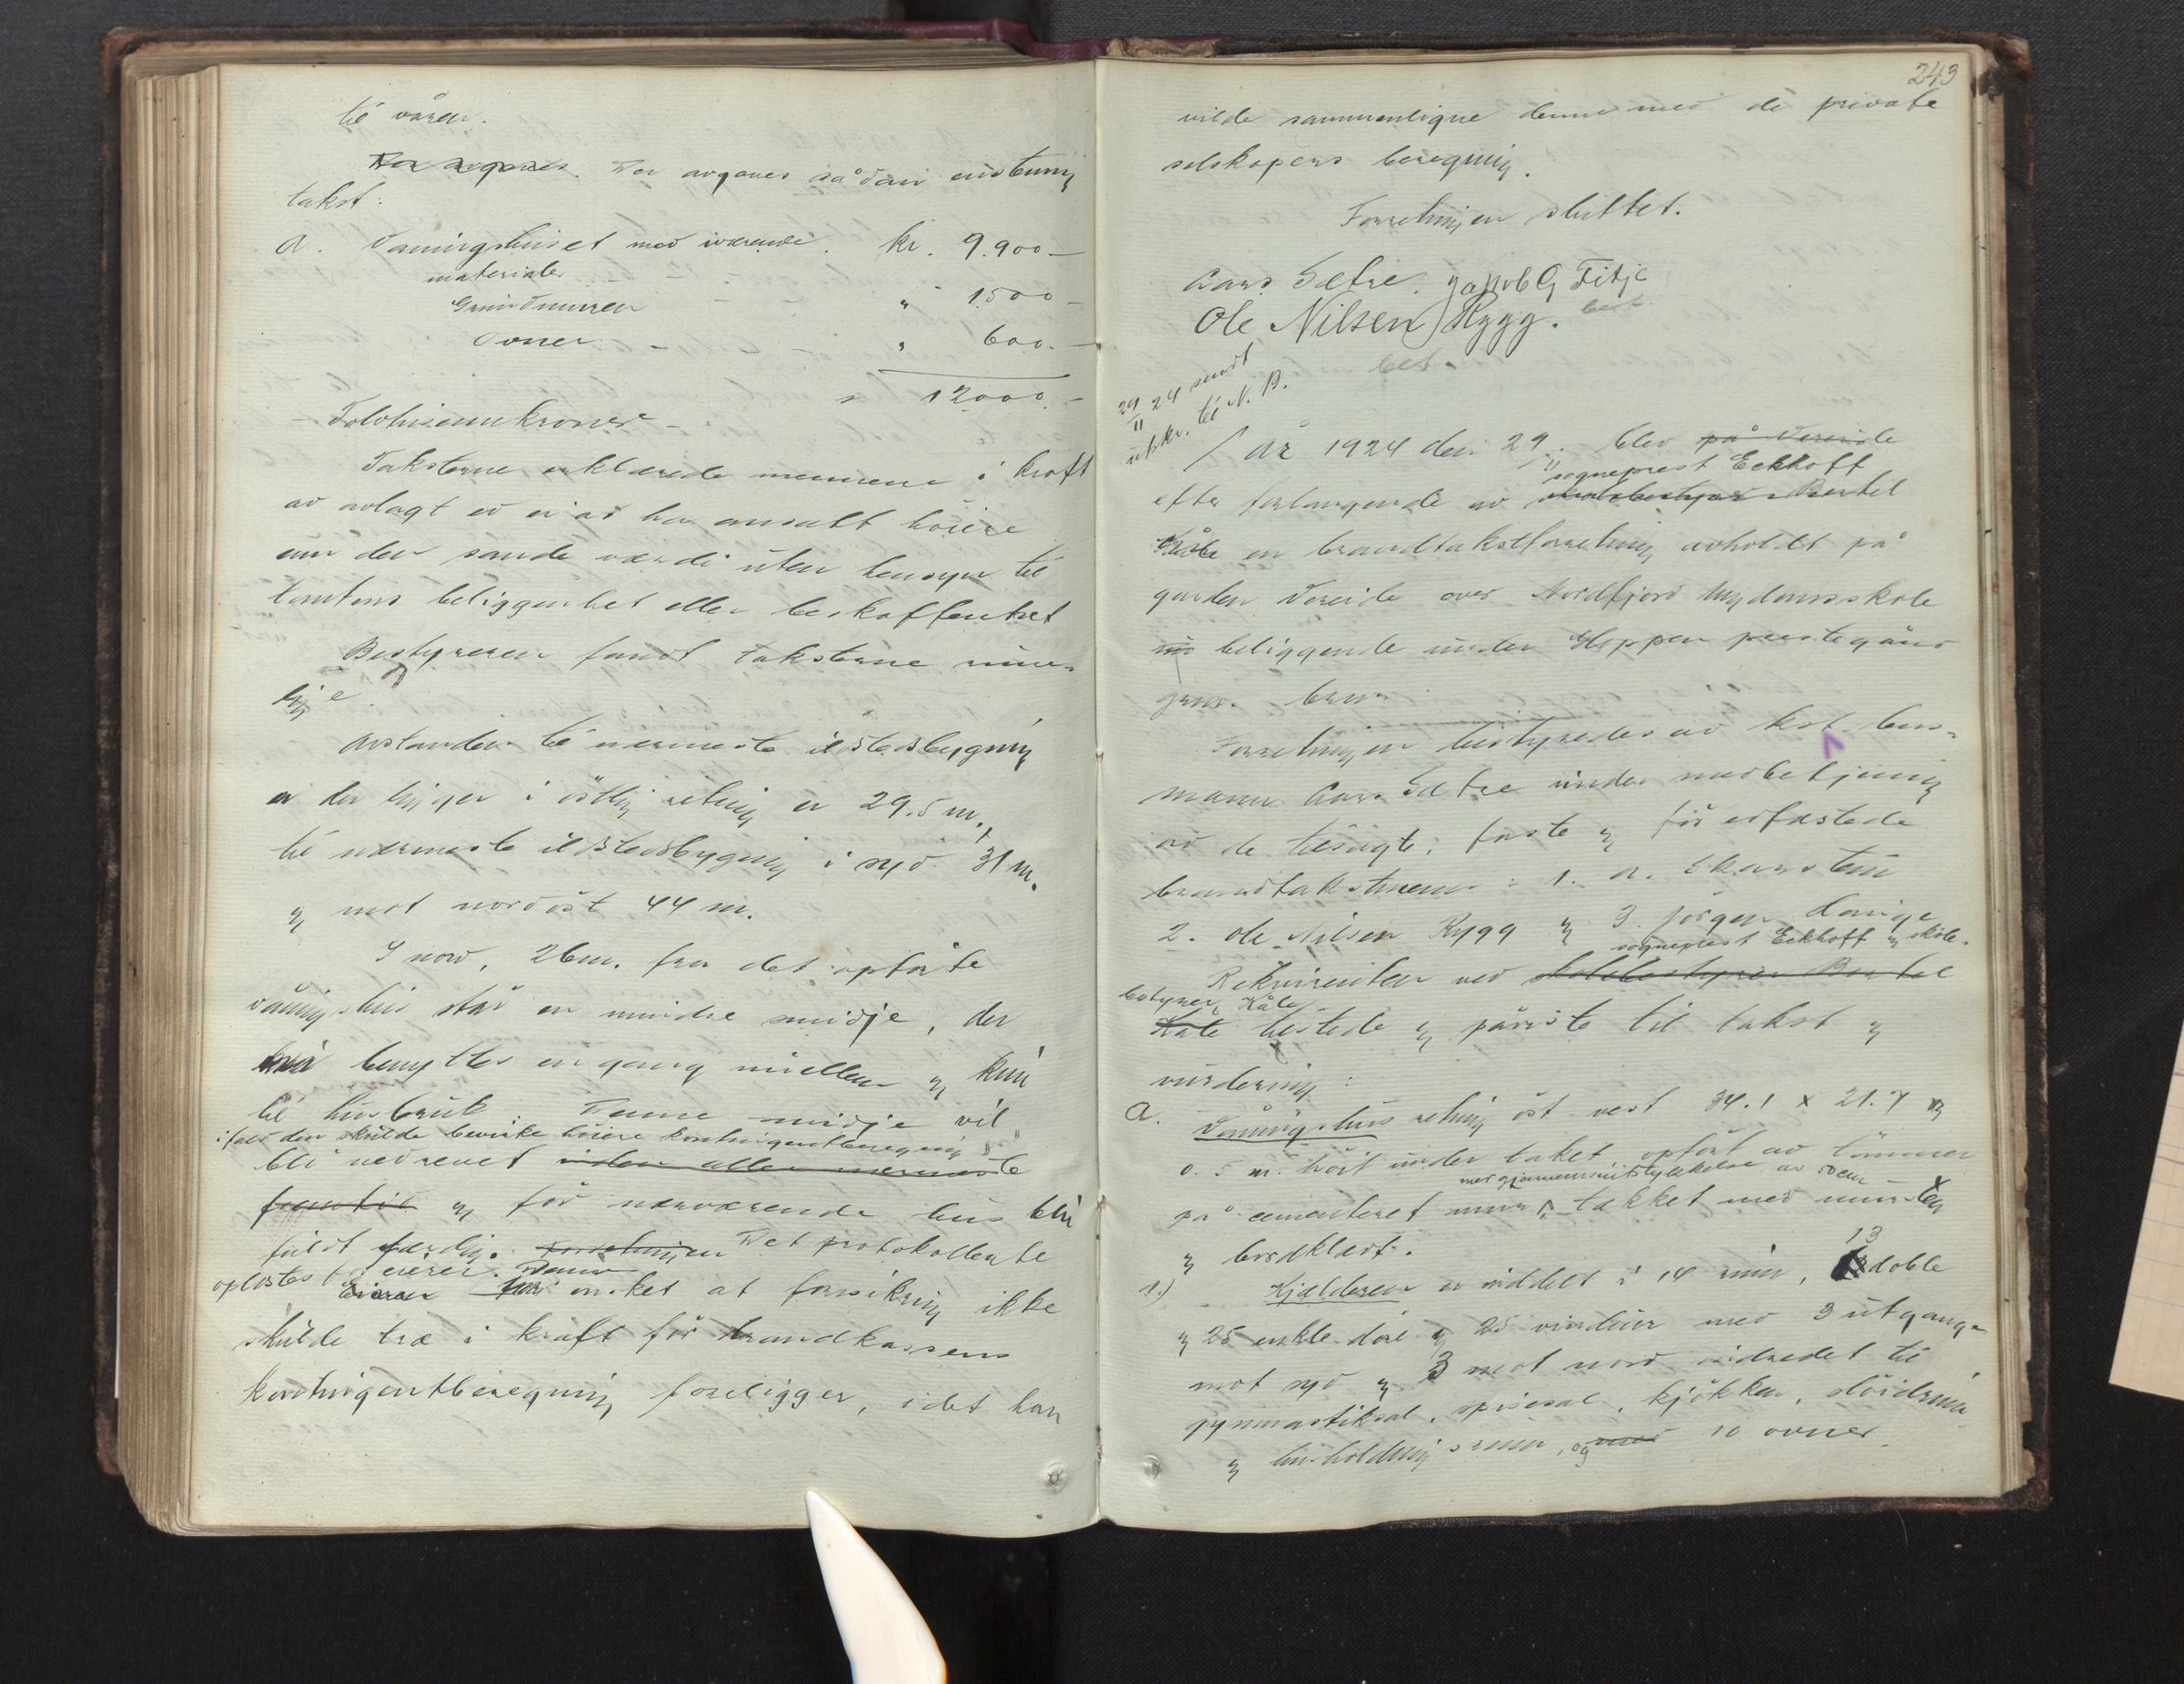 til våren.
Der avgaves. Der avgaves sådan enstemig
takst:
a. Våningshuset med iværende kr. 9.900 -
materialer
Grundmuren " 1500 -
Ovner - - - " 600. -
" 12000. -
- Tolvtusenkroner -
Taksterne erklærede mennene i kraft
av avlagt ed ei at ha ansatt høiere
enn den sande værdi uten hensyn til
tomtens beliggenhet eller beskaffenhet
Bestyreren fandt taksterne rime-
lige.
Avstanden til nærmeste ildstedsbygning
er der ligger i östlig retning er 29.5 m.,
til nærmeste ildstedsbygning i syd 31 m.
og mot nordöst 44 m.
I nord, 26 m. fra det opförte
våningshus står en mindre smidje, der
benyttes engang imellem og kun
til husbruk. Denne smidje vil
ifald den skulde bevirke höiere kontingentberegning
bli nedrevet inden aller nærmeste
framtid og för nærværende hus blir
fuldt færdig. Forretningen Det protokollerte
oplæstes for eieren. Denne
Eieren har ønsket at forsikring ikke
skulde træ i kraft för brandkassens
kontingentberegning foreligger, idet han
243
vilde sammenligne denne med de private
selskapers beregning.
Forretningen sluttet.
Lars Sætre. Jakob G Fitje
Ole Nilsen Rygg. bet
bet.
29/II 24 sendt
utskr. til N. B.
År 1924 den 29/II blev på Vereide
sogneprest Eckhoff
efter forlangende av skolebestyrer Bertel
Kåle en brandtakstforretning avholdt på
garden Vereide over Nordfjord Ungdomsskole
beliggende under Gloppen prestegård
Forretningen bestyredes av kst. lens-
mann Lars Sætre under medbetjening
av de tilsagte, faste og för edfæstede
brandtakstmenn: 1. A. Skarstein
2. Ole Nilsen Rygg og 3. Jörgen Hauge
sogneprest Eckhoff og skole-
Rekvirenten ved skolebestyrer Bertel
bestyrer Kåle
Kåle tilstede og påviste til takst og
vurdering:
a. Våningshus retning öst-vest 34.1 x 21.7 og
0.5 m. höit under taket, opfört av tömmer
med gjennemsnitstykkelse av
på cementeret mur, tækket med
og bordklædt.
13
1.) Kjælderen er inddelt i 14 rum, doble
og 25 enkle döre og 25 vinduer med 3 utgang-
mot syd og 3 mot nord inredet til
gymnastiksal, spisesal, kjökken, slöidrum
og husholdningsrum, og med 10 ovner.